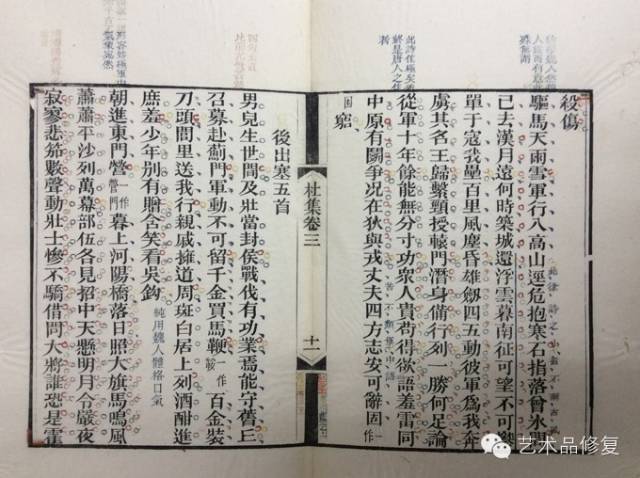 殺傷
驅馬天雨雪軍行入高山逕危抱寒石指落曾氷間
已去漢月遠何時築城還浮雲暮南征可望不可攀
單于寇我壘百里風塵昏雄劔四五動彼軍為我奔
虜其名王歸繫頸授轅門潛身備行列一勝何足論
從軍十年餘能無分寸功衆人貴苟得欲語羞雷同
中原有鬭爭况在狄與戎丈夫四方志安可辭固一作
固窮
杜集卷三
十一
後出塞五首
男兒生世間及壯當封侯戰伐有功業焉能守舊丘
召募赴薊門軍動不可留千金買馬鞭一作鞍百金裝
刀頭閭里送我行親戚擁道周斑白居上列酒酣進
庶羞少年别有贈含笑看吳鈎純用魏人體格口氣
朝進東門營一作營門暮上河陽橋落日照大旗馬鳴風
蕭蕭平沙列萬幕部伍各見招中天懸明月令嚴夜
寂寥悲笳數聲動壯士慘不驕借問大將誰恐是霍
艺术品修复